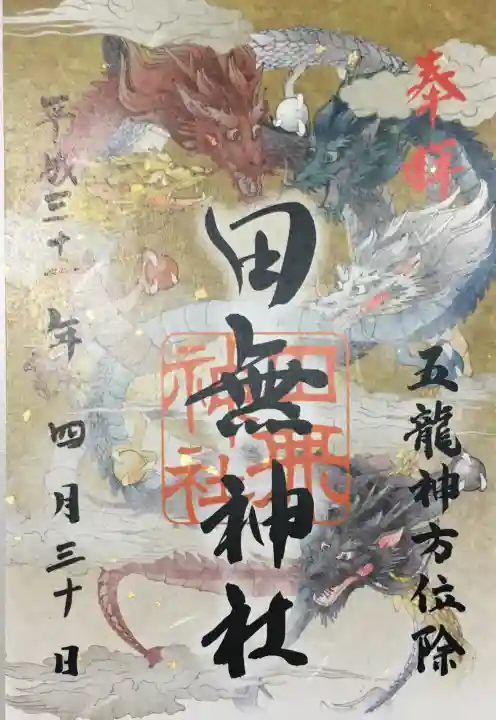 奉拝
五龍神方位除
田無神社
田無神社
平成三十一年
四月三十日